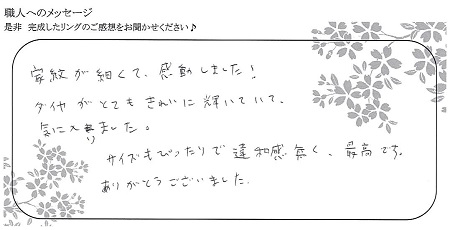 職人へのメッセージ
是非 完成したリングのご感想をお聞かせください♪
家紋が細くて、感動しました！
ダイヤがとてもきれいに輝いていて、
気に入りました。
サイズもぴったりで違和感無く、最高です。
ありがとうございました。